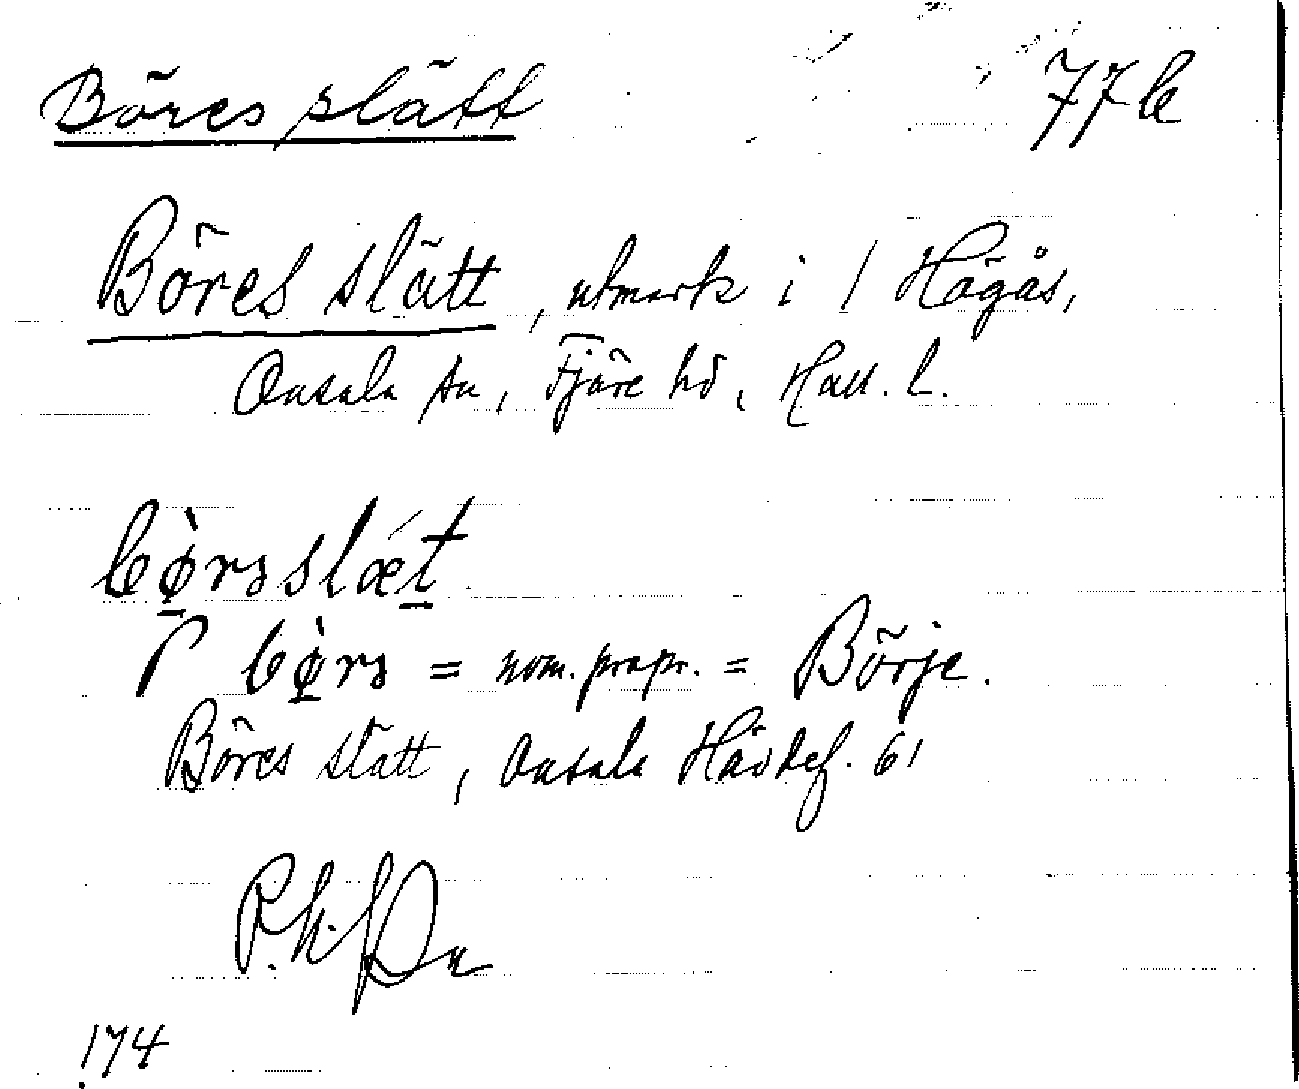 Böres slätt 77b
Böres slätt, utmark i 1 Högås,
Onsala sn, Fjäre hd, Hall. l.
bø̀rsslæt
bø̀rs = nom. propr. = Börje.
Böres slätt, Onsala Hävdef. 61
P.h.
174